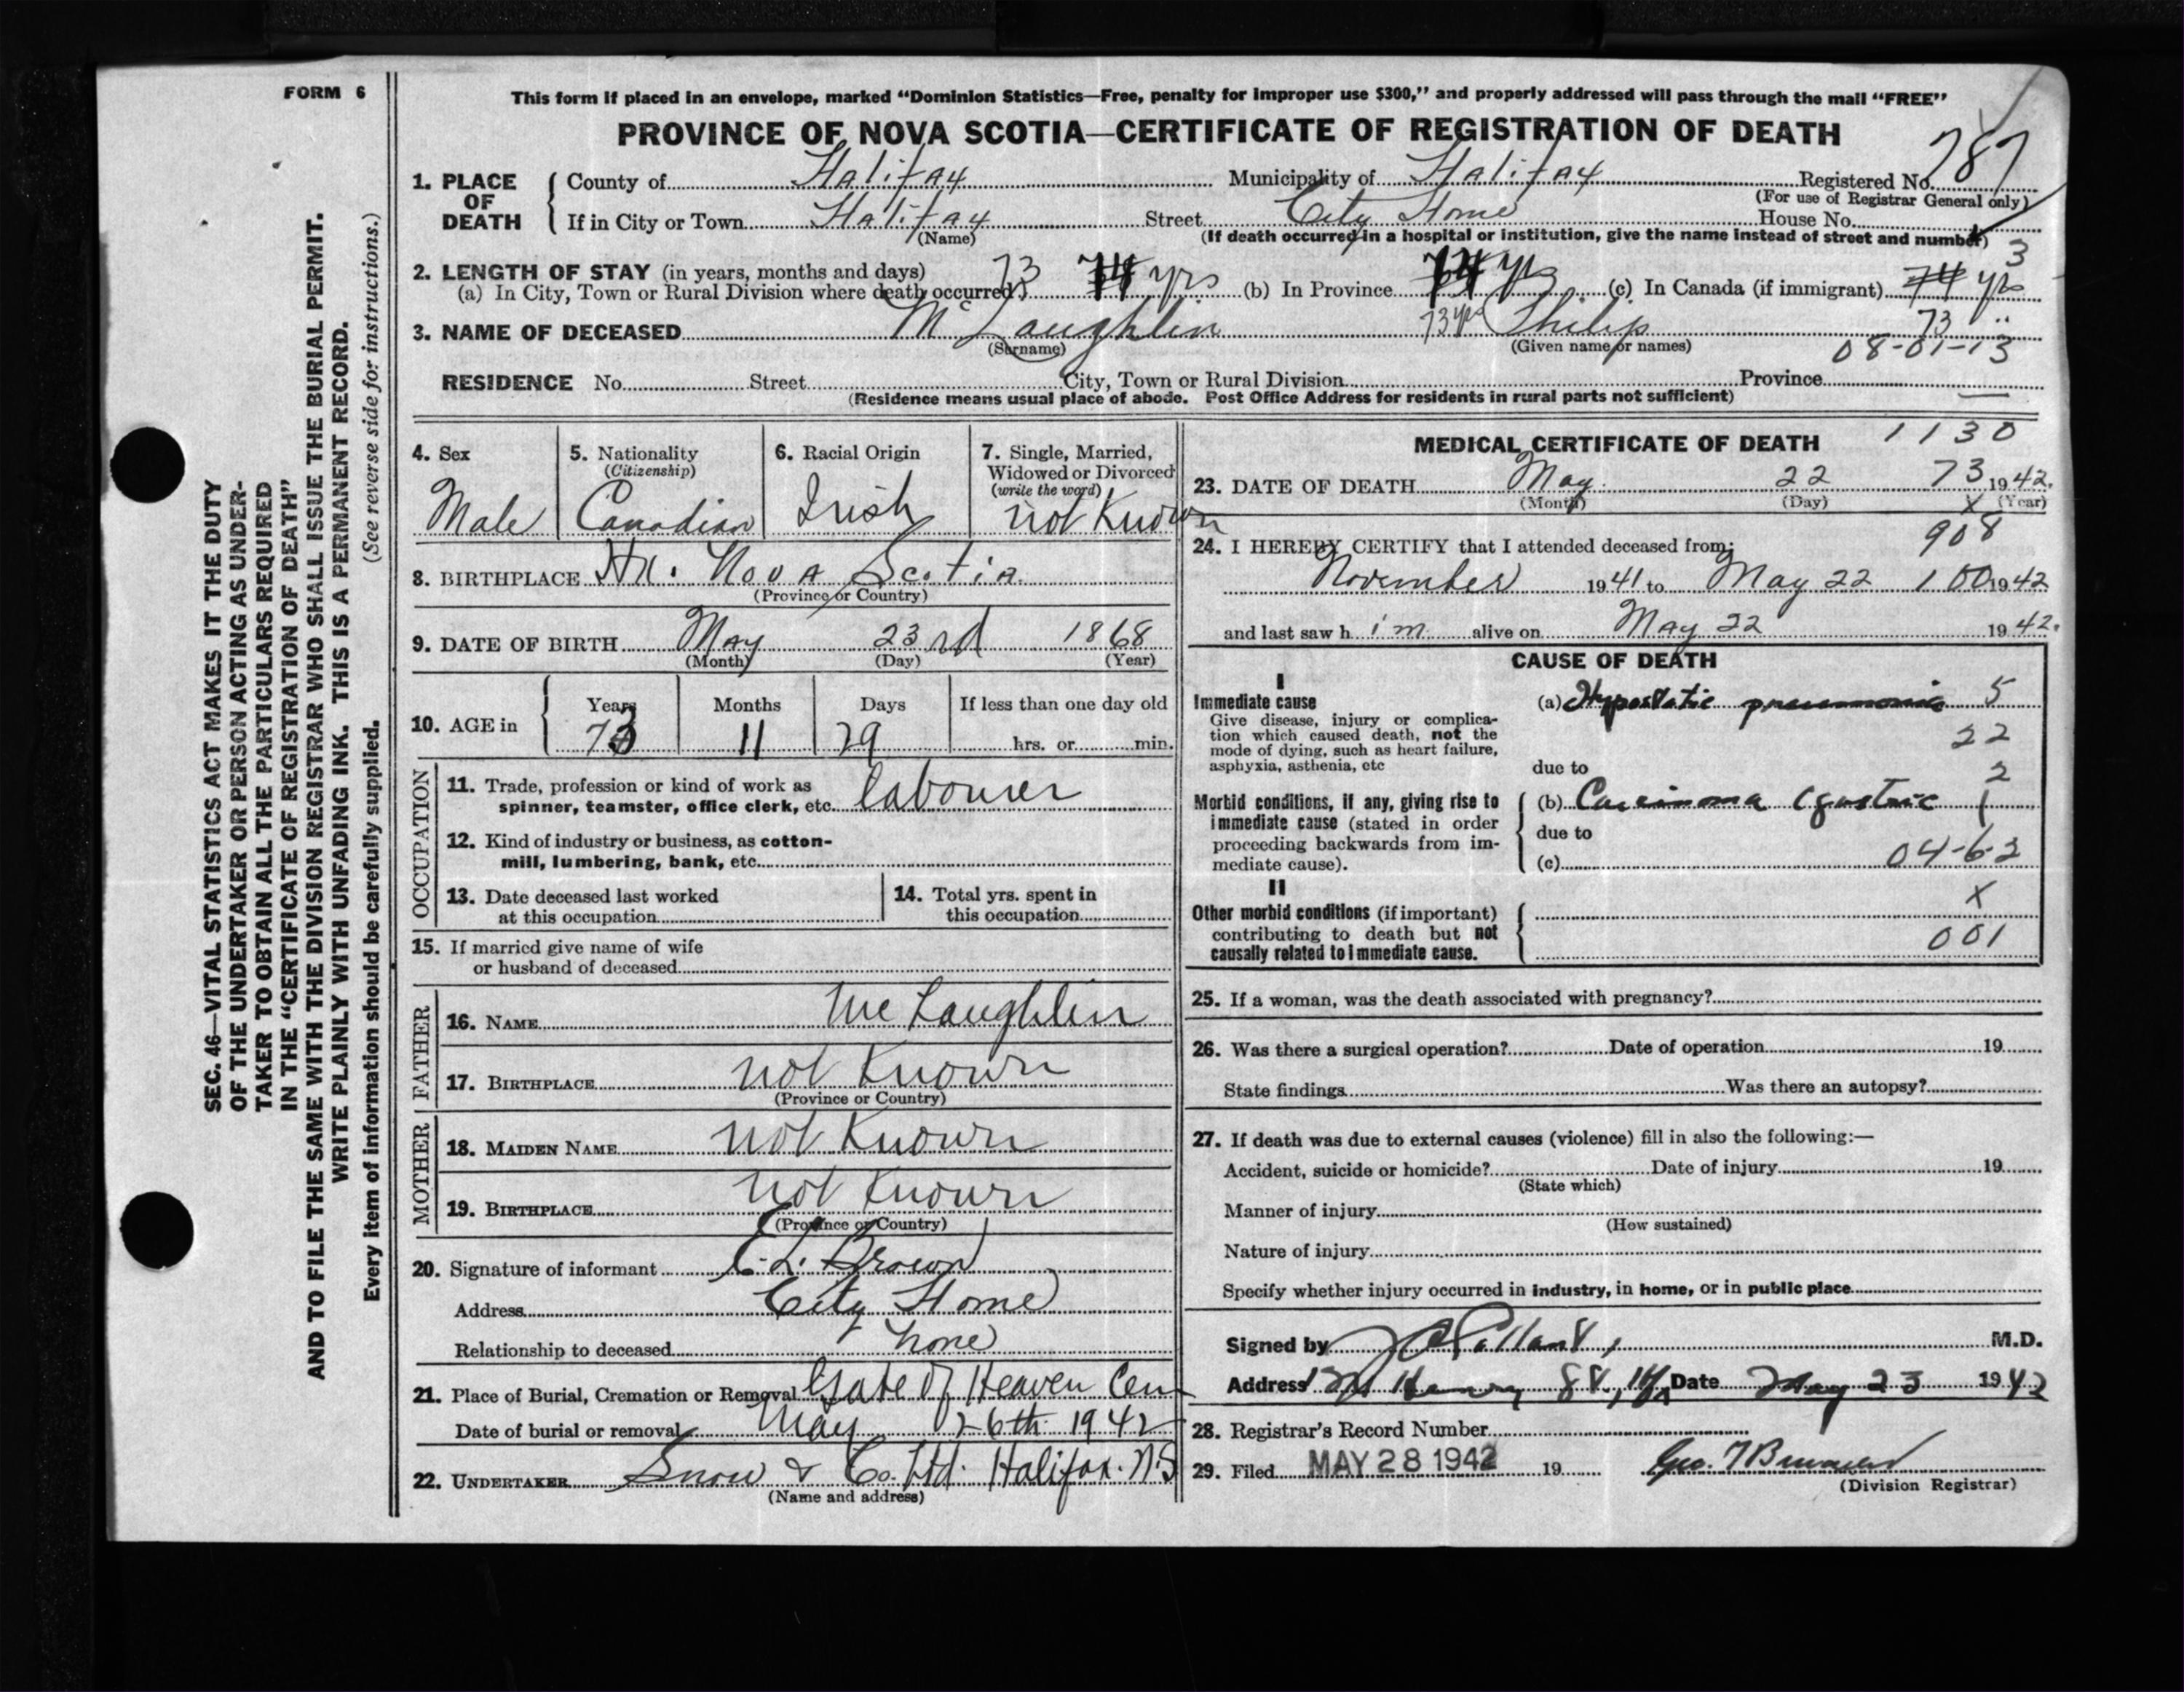 FORM 6
SEC. 46—VITAL STATISTICS ACT MAKES IT THE DUTY
OF THE UNDERTAKER OR PERSON ACTING AS UNDER-
TAKER TO OBTAIN ALL THE PARTICULARS REQUIRED
IN THE "CERTIFICATE OF REGISTRATION OF DEATH"
AND TO FILE THE SAME WITH THE DIVISION REGISTRAR WHO SHALL ISSUE THE BURIAL PERMIT.
WRITE PLAINLY WITH UNFADING INK. THIS IS A PERMANENT RECORD.
Every item of information should be carefully supplied. (See reverse side for instructions.)
This form if placed in an envelope, marked "Dominion Statistics—Free, penalty for improper use $300," and properly addressed will pass through the mail "FREE"
PROVINCE OF NOVA SCOTIA—CERTIFICATE OF REGISTRATION OF DEATH
1. PLACE OF DEATH
County of Halifax Municipality of Halifax Registered No. 787
(For use of Registrar General only)
If in City or Town Halifax Street City Home House No.
(Name) (If death occurred in a hospital or institution, give the name instead of street and number)
3
2. LENGTH OF STAY (in years, months and days)
(a) In City, Town or Rural Division where death occurred 73 74 yrs (b) In Province 74 yrs (c) In Canada (if immigrant) 74 yrs
3. NAME OF DECEASED Mc Laughlin 73 yrs Philip 73 "
(Surname) (Given name or names) 08-01-13
RESIDENCE No. Street City, Town or Rural Division Province
(Residence means usual place of abode. Post Office Address for residents in rural parts not sufficient)
4. Sex
Male
5. Nationality
(Citizenship)
Canadian
6. Racial Origin
Irish
7. Single, Married,
Widowed or Divorced
(write the word)
not Known
8. BIRTHPLACE Hx. Nova Scotia
(Province or Country)
9. DATE OF BIRTH May 23rd 1868
(Month) (Day) (Year)
10. AGE in
Years Months Days If less than one day old
73 11 29 hrs. or min.
OCCUPATION
11. Trade, profession or kind of work as
spinner, teamster, office clerk, etc. labourer
12. Kind of industry or business, as cotton-
mill, lumbering, bank, etc.
13. Date deceased last worked
at this occupation
14. Total yrs. spent in
this occupation
15. If married give name of wife
or husband of deceased
FATHER
16. NAME Mc Laughlin
17. BIRTHPLACE not Known
(Province or Country)
MOTHER
18. MAIDEN NAME not Known
19. BIRTHPLACE not Known
(Province or Country)
20. Signature of informant E. L. Brown
Address City Home
Relationship to deceased none
21. Place of Burial, Cremation or Removal Gate of Heaven Cem
Date of burial or removal May 26th 1942
22. UNDERTAKER Snow & Co. Ltd. Halifax. N.S
(Name and address)
MEDICAL CERTIFICATE OF DEATH 1130
23. DATE OF DEATH May 22 73 1942.
(Month) (Day) X (Year)
908
24. I HEREBY CERTIFY that I attended deceased from:
November 1941 to May 22 100 1942
and last saw him alive on May 22 1942.
CAUSE OF DEATH
I
Immediate cause
Give disease, injury or complica-
tion which caused death, not the
mode of dying, such as heart failure,
asphyxia, asthenia, etc
(a) Hypostatic pneumonia 5
22
due to
2
Morbid conditions, if any, giving rise to
immediate cause (stated in order
proceeding backwards from im-
mediate cause).
(b) Carcinoma (gastric 1
due to
(c) 04-6-2
II
Other morbid conditions (if important)
contributing to death but not
causally related to immediate cause.
X
001
25. If a woman, was the death associated with pregnancy?
26. Was there a surgical operation? Date of operation 19
State findings Was there an autopsy?
27. If death was due to external causes (violence) fill in also the following:—
Accident, suicide or homicide? Date of injury 19
(State which)
Manner of injury
(How sustained)
Nature of injury
Specify whether injury occurred in industry, in home, or in public place
Signed by M.D.
Address Henry St., Hfx Date May 23 1942
28. Registrar's Record Number
29. Filed MAY 28 1942 19 Geo.
(Division Registrar)